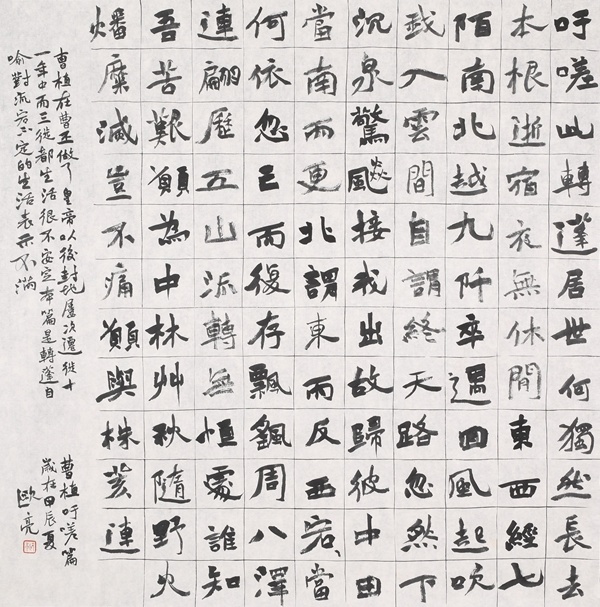 吁嗟此轉蓬居世何獨然長去
本根逝宿夜無休閒東西經七
陌南北越九阡卒遇回風起吹
我入雲間自謂終天路忽然下
沉泉驚飈接我出故歸彼中田
當南而更北謂東而反西宕、當
何依忽亡而復存飄颻周八澤
連翩歷五山流轉無恆處誰知
吾苦艱願為中林艸秋隨野火
燔糜滅豈不痛願與株荄連
曹植在曹丕做了皇帝以後封地屢次遷徙十
一年中而三徙都生活很不安定本篇是轉蓬自
喻對流宕不定的生活表示不滿
曹植吁嗟篇
歲在甲辰夏
歐亮